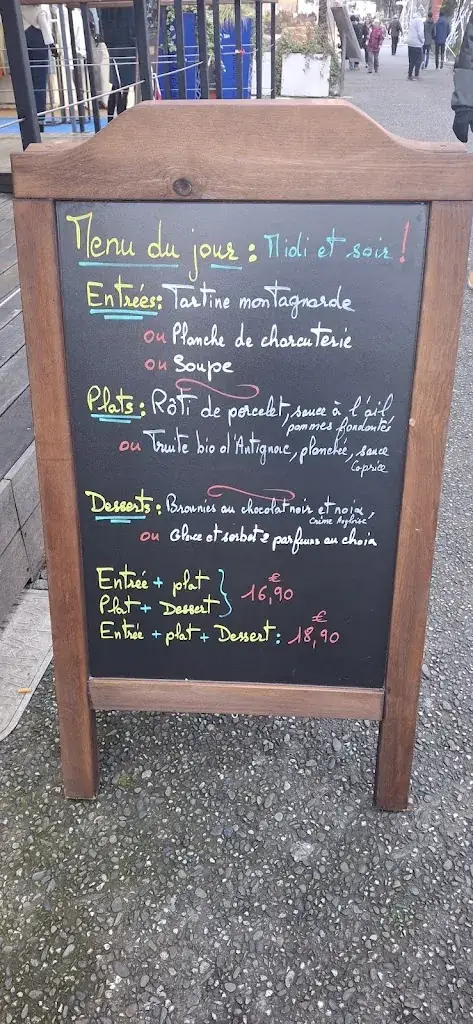 Menu du jour : Midi et soir !
Entrées : Tartine montagnarde
ou Planche de charcuterie
ou Soupe
Plats : Rôti de porcelet, sauce à l'ail,
pommes fondantes
ou Truite bio d'Antignac, planchée, sauce
Caprice
Desserts : Brownies au chocolat noir et noix,
crème Anglaise,
ou Glace et sorbet 2 parfums au choix
Entrée + plat
Plat + Dessert } 16,90 €
Entrée + plat + Dessert : 18,90 €